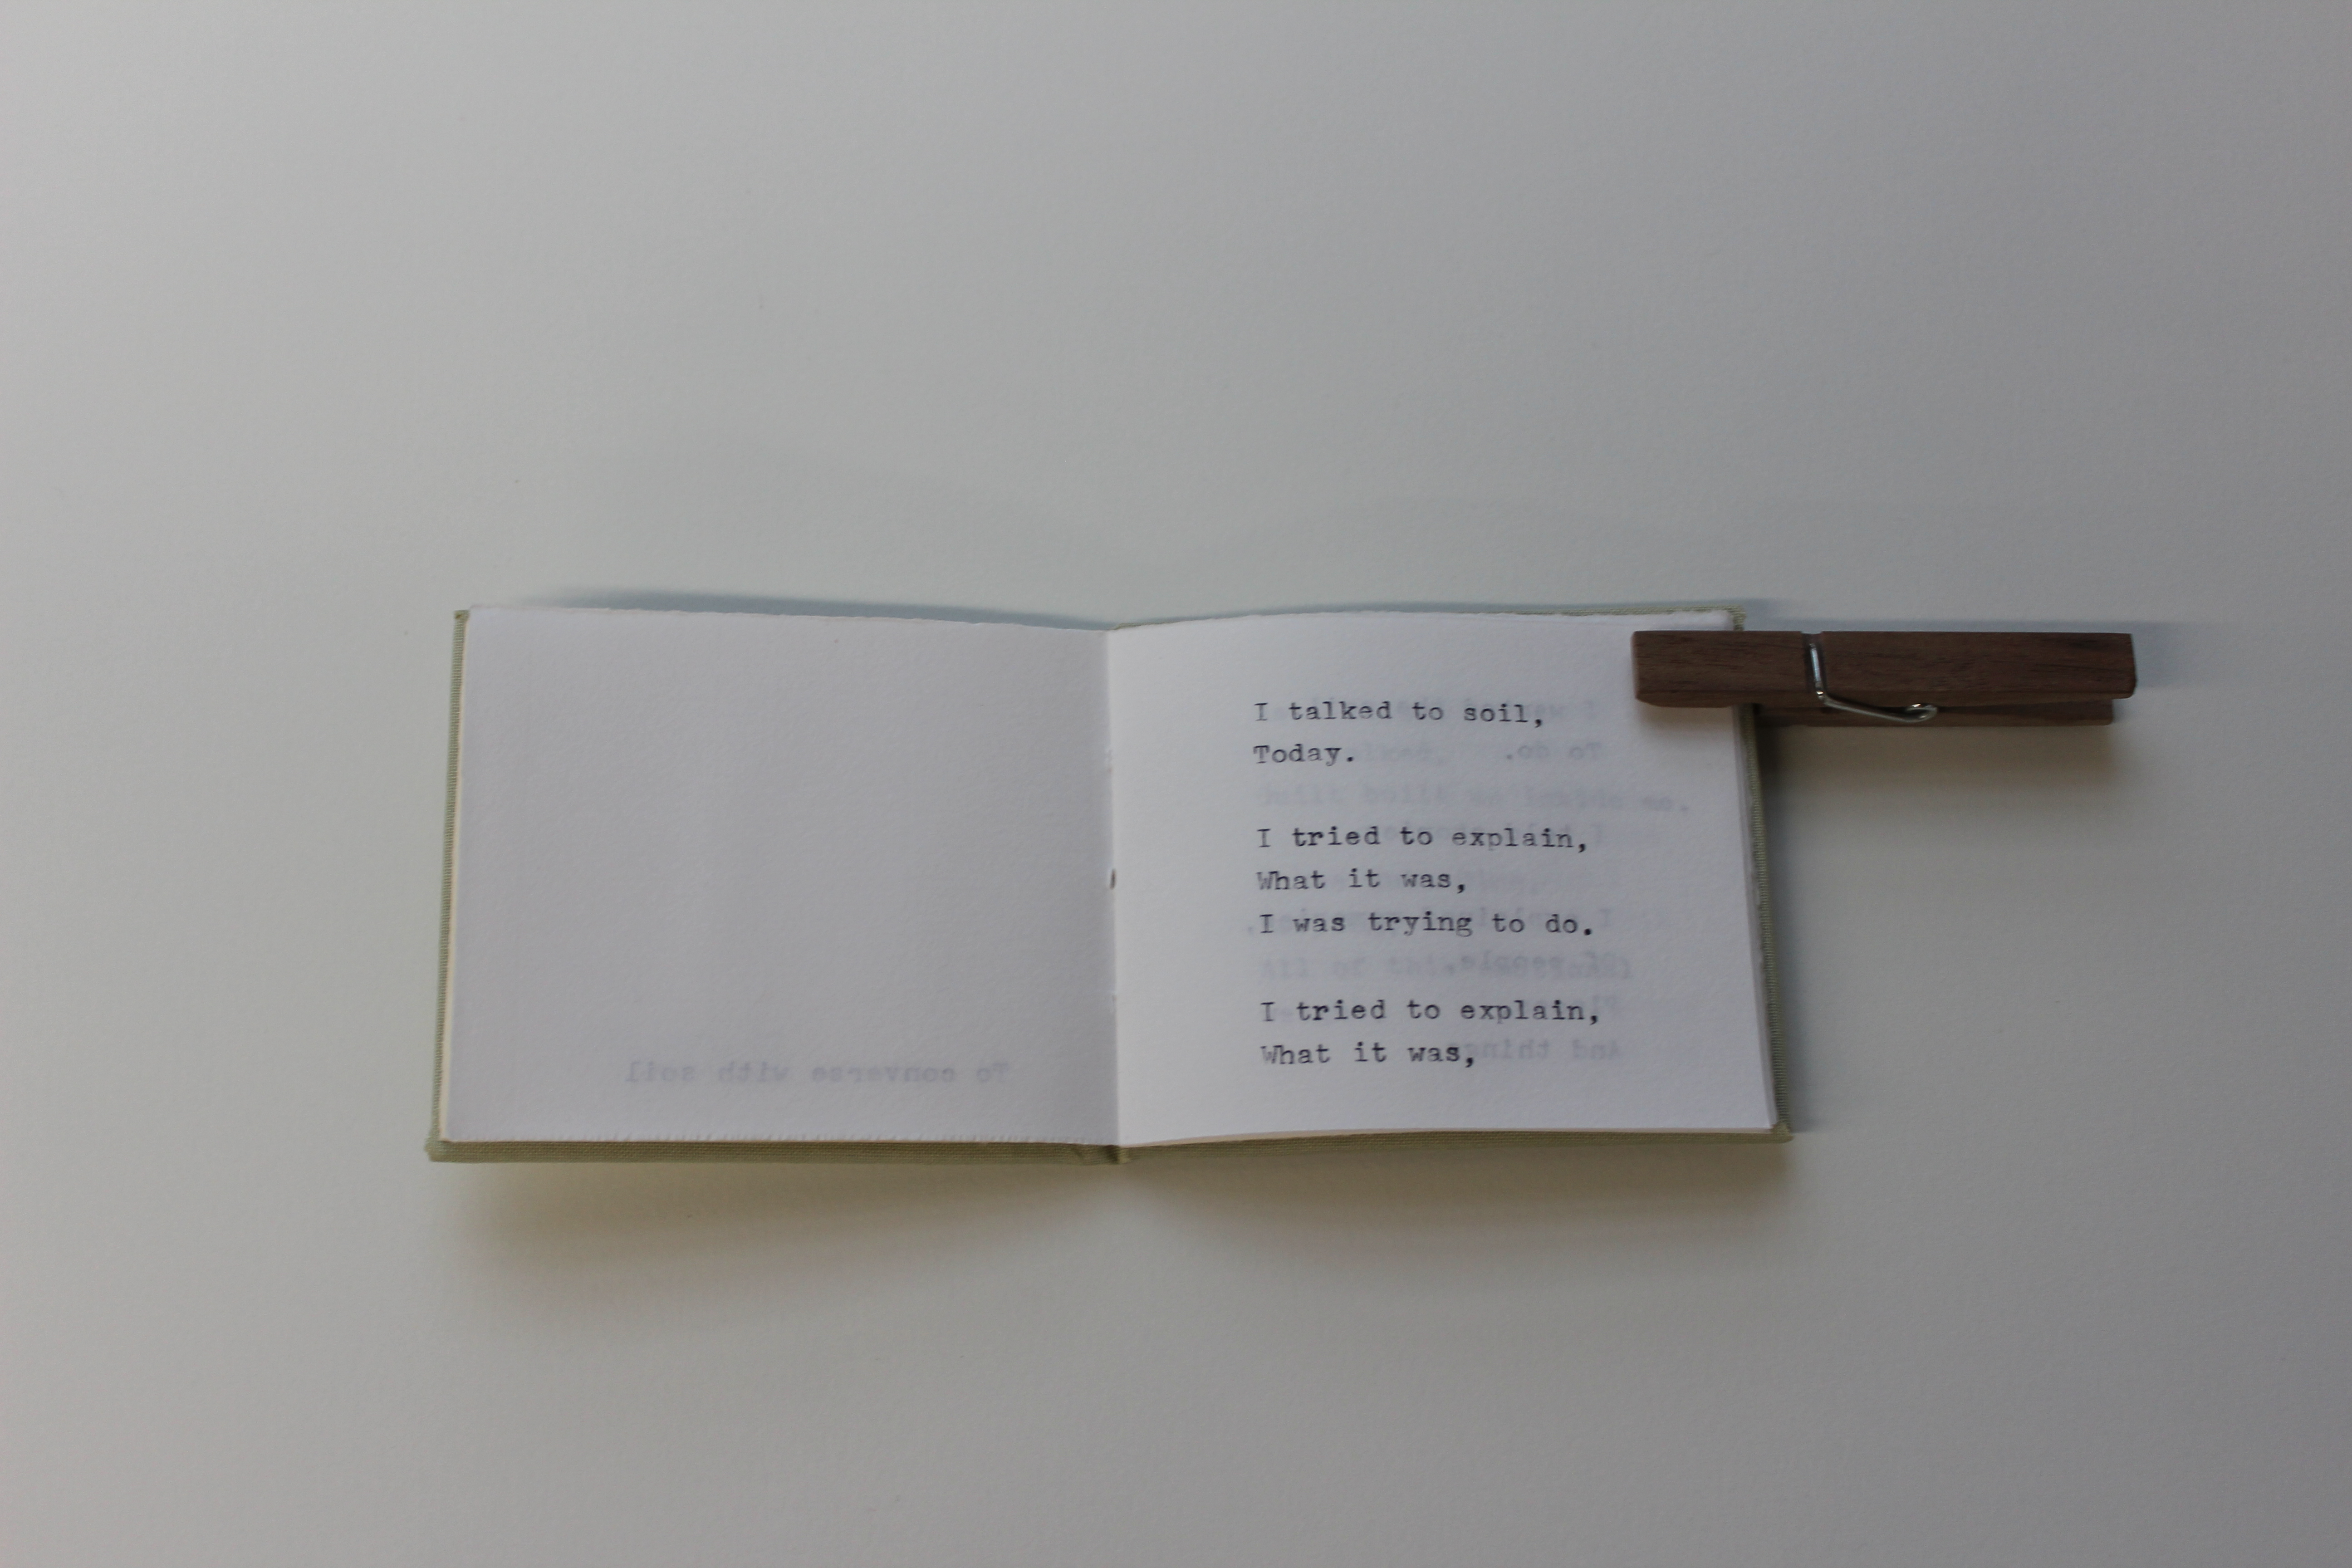 To converse with soil
I talked to soil,
Today.
I tried to explain,
What it was,
I was trying to do.
I tried to explain,
What it was,